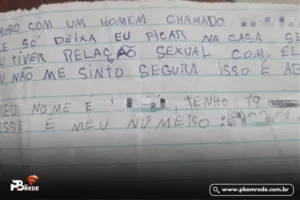 MORO COM UM HOMEM CHAMADO
SÓ DEIXA EU FICAR NA CASA SE
TIVER RELAÇÃO SEXUAL COM EL
NÃO ME SINTO SEGURA ISSO É AB
MEU NOME É TENHO 19
ESSE É MEU NUMERO:
PBEMREDE
www.pbemrede.com.br